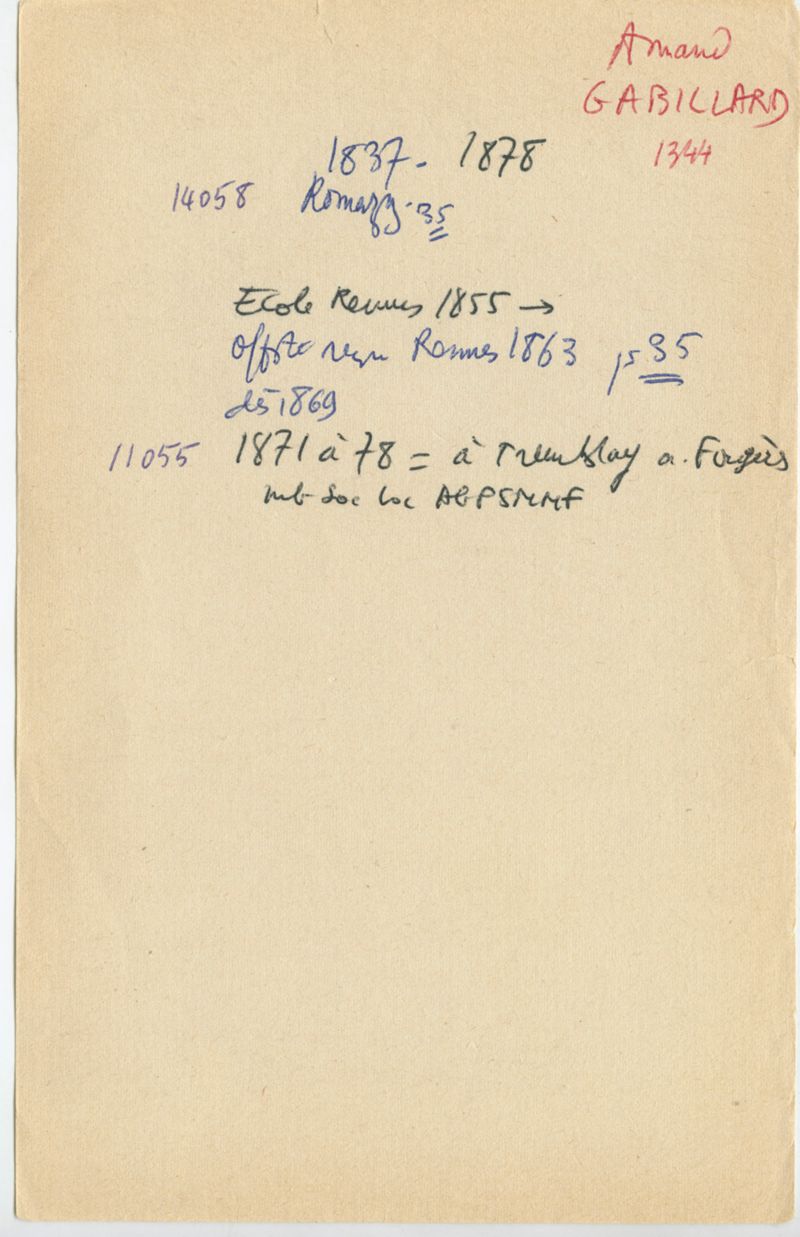 Amand
GABILLARD
1344
1837 - 1878
14058 Romazy. 35
Ecole Rennes 1855 →
Offste reçu Rennes 1863 ps 35
dès 1869
11055 1871 à 78 = à Tremblay a. Fougères
mb Soc Loc AGPSMMF